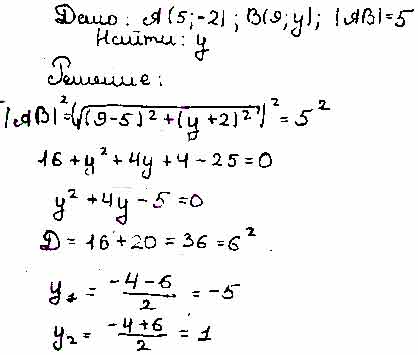 Дано: A(5;-2); B(9;y); |AB|=5
Найти: y
Решение:
|AB|²=(√(9-5)²+(y+2)²)²=5²
16+y²+4y+4-25=0
y²+4y-5=0
D=16+20=36=6²
y₁=\frac{-4-6}{2}=-5
y₂=\frac{-4+6}{2}=1